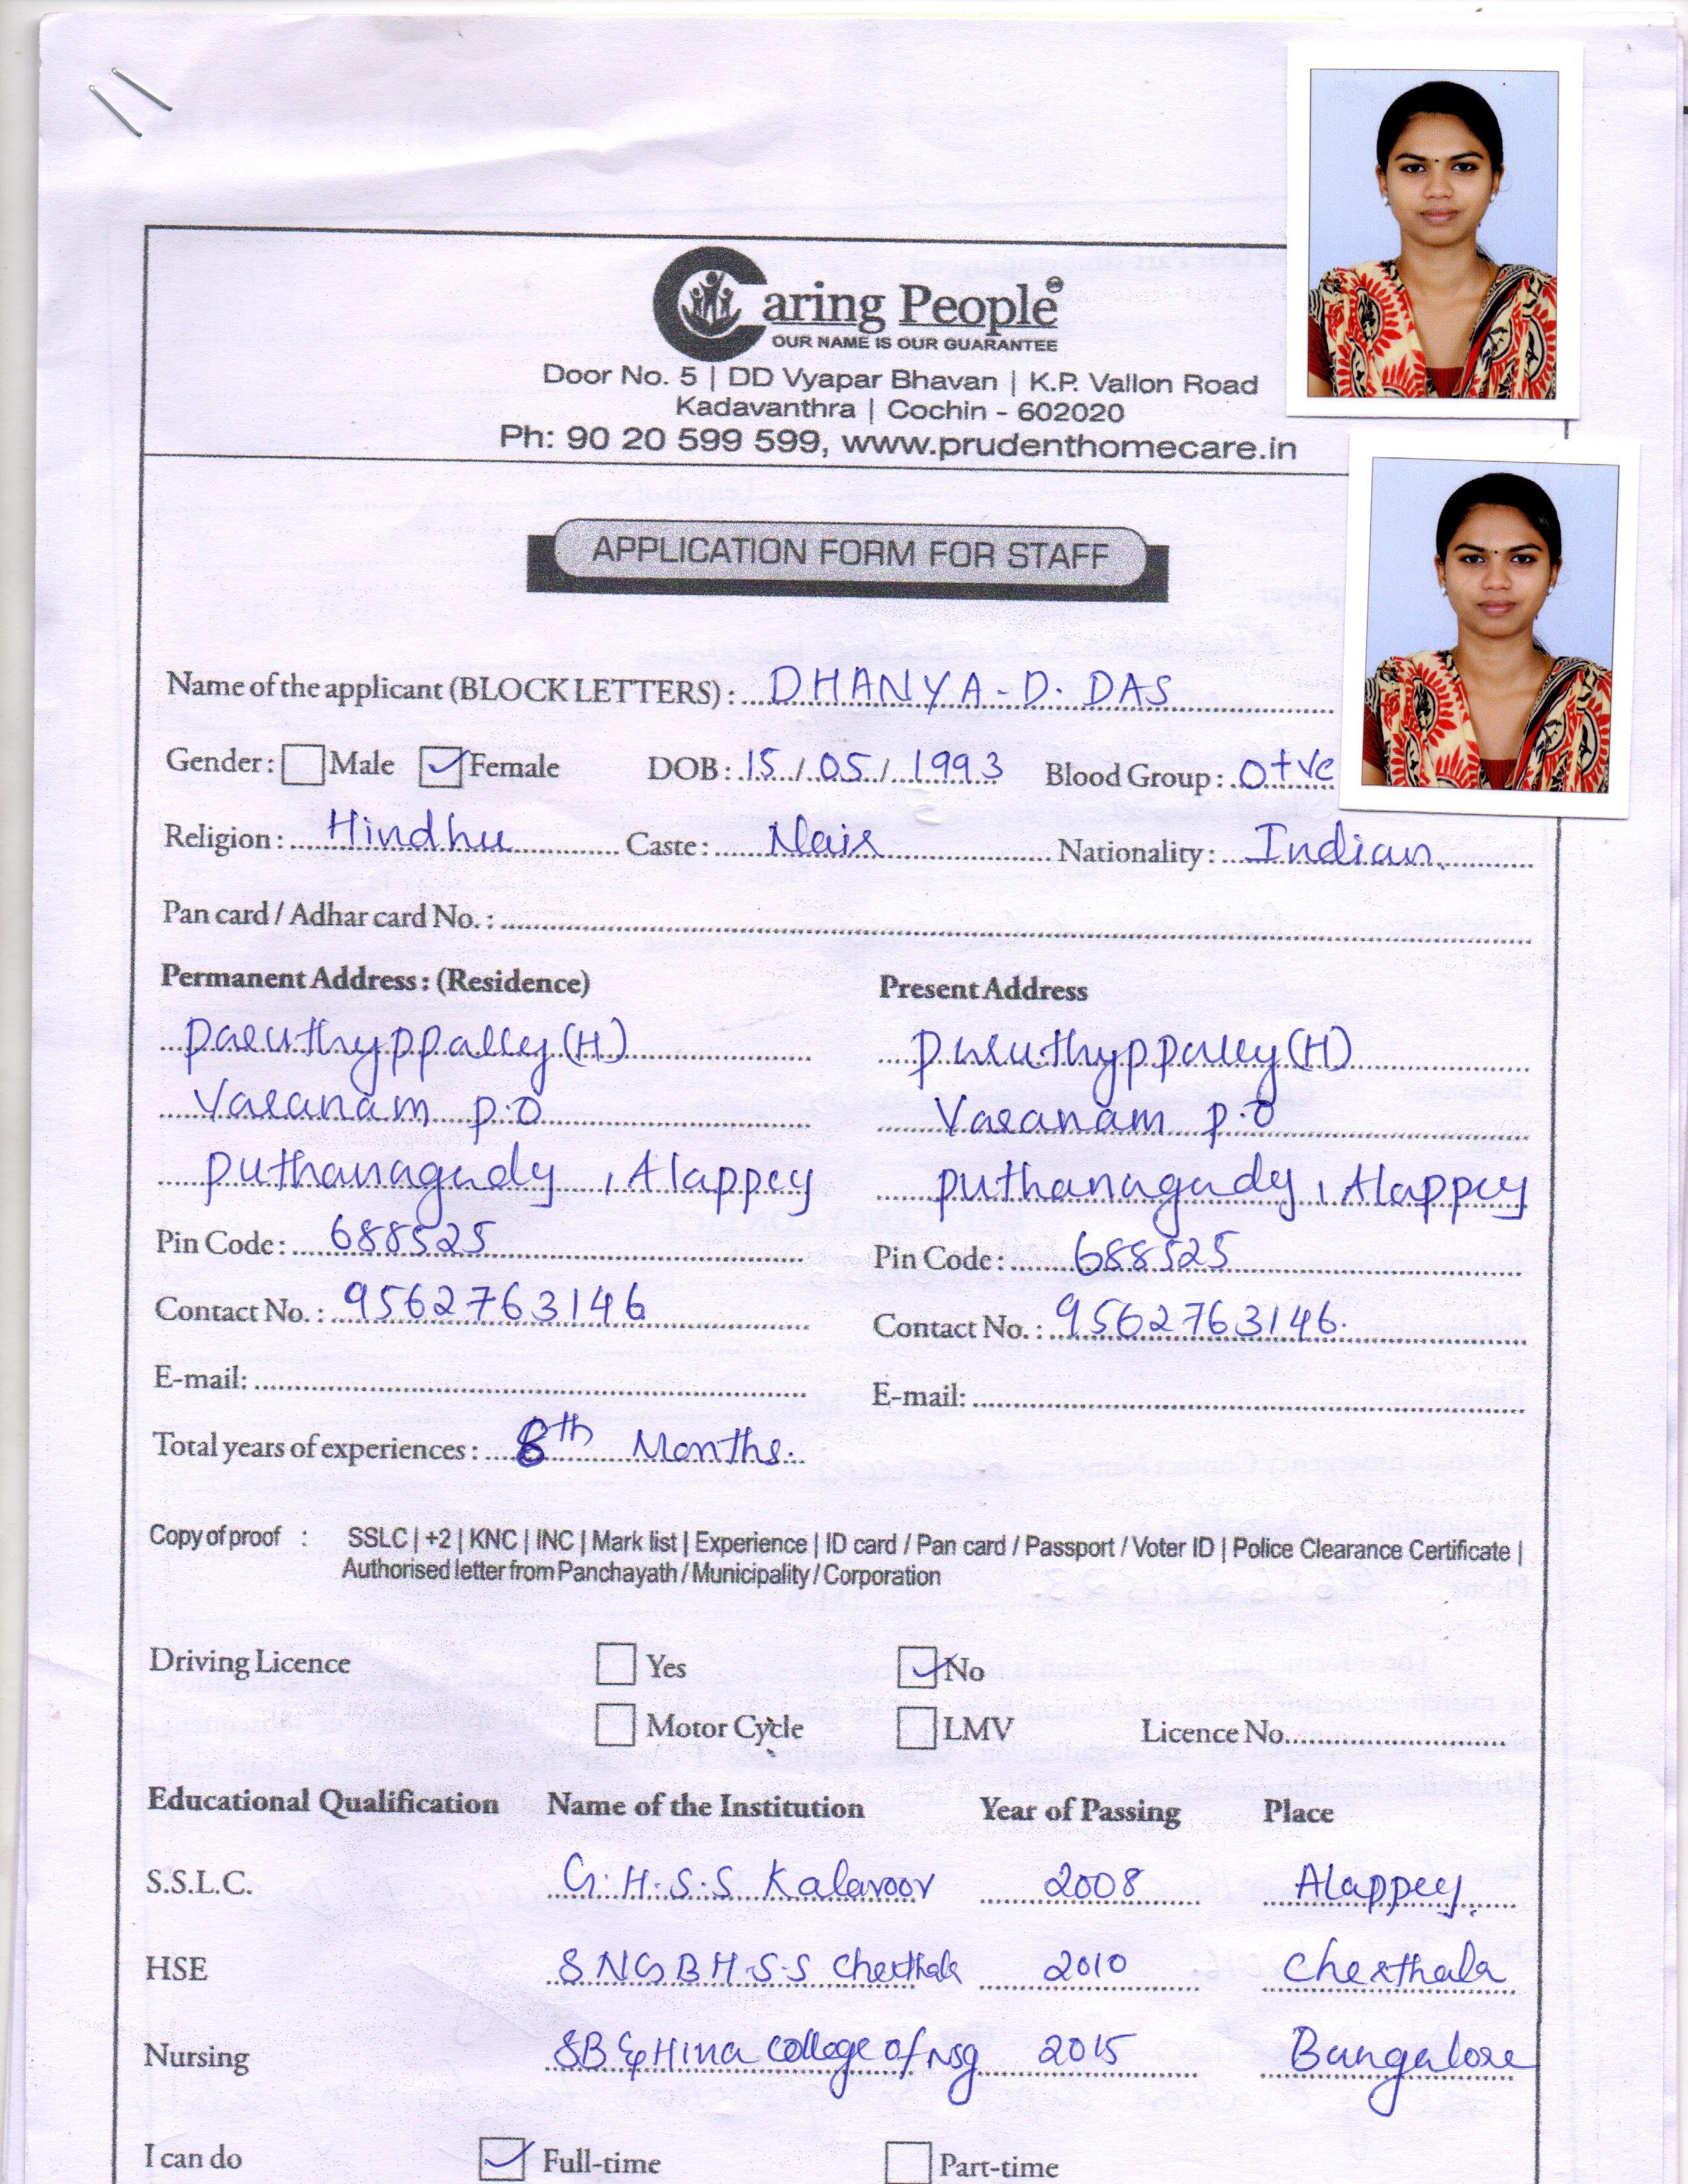 Caring People
OUR NAME IS OUR GUARANTEE
Door No. 5 | DD Vyapar Bhavan | K.P. Vallon Road
Kadavanthra | Cochin - 602020
Ph: 90 20 599 599, www.prudenthomecare.in
APPLICATION FORM FOR STAFF
Name of the applicant (BLOCK LETTERS) : DHANYA - D. DAS
Gender : Male Female DOB : 15 / 05 / 1993 Blood Group : O+ve
Religion : Hindhu Caste : Nair Nationality : Indian
Pan card / Adhar card No. :
Permanent Address : (Residence) Present Address
Paruthyppally (H) Paruthyppally (H)
Varanam p.o Varanam p.o
puthanagady , Alappey puthanagady , Alappey
Pin Code : 688525 Pin Code : 688525
Contact No. : 9562763146 Contact No. : 9562763146.
E-mail: E-mail:
Total years of experiences : 8th Months.
Copy of proof : SSLC | +2 | KNC | INC | Mark list | Experience | ID card / Pan card / Passport / Voter ID | Police Clearance Certificate |
Authorised letter from Panchayath / Municipality / Corporation
Driving Licence Yes No
Motor Cycle LMV Licence No.
Educational Qualification Name of the Institution Year of Passing Place
S.S.L.C. G.H.S.S Kalavoor 2008 Alappey.
HSE SNGBH.S.S Cherthala 2010 Cherthala
Nursing College of Nsg 2015 Bangalore
I can do Full-time Part-time